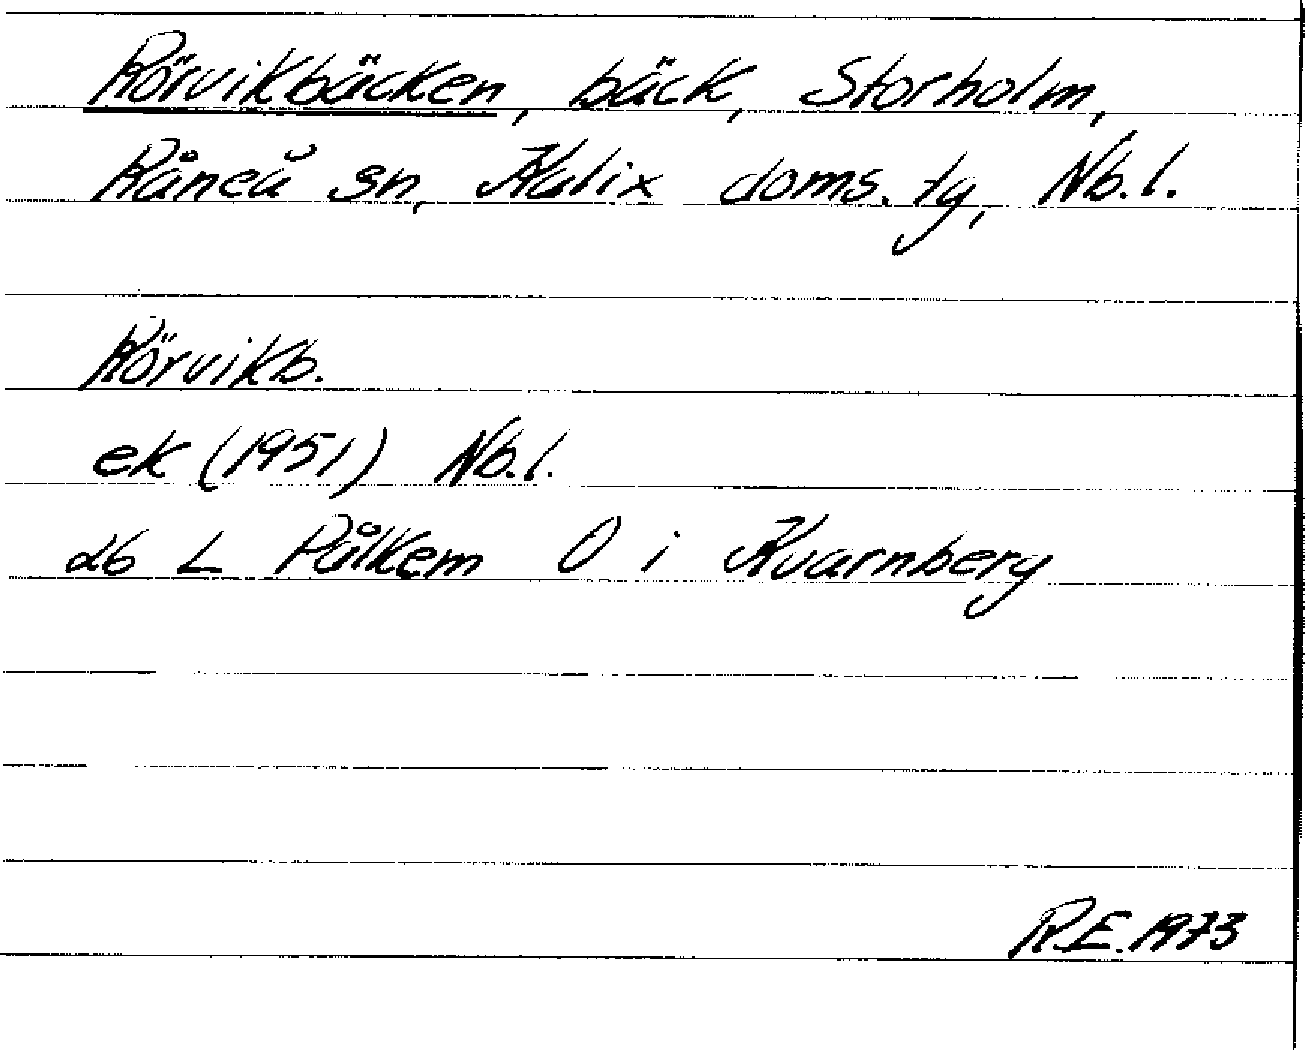 Rörvikbäcken, bäck, Storholm,
Råneå sn, Kalix doms. tg, Nb. l.
Rörvikb.
ek (1951) Nb. l.
db L Pålkem O i Kvarnberg
R.E. 1973